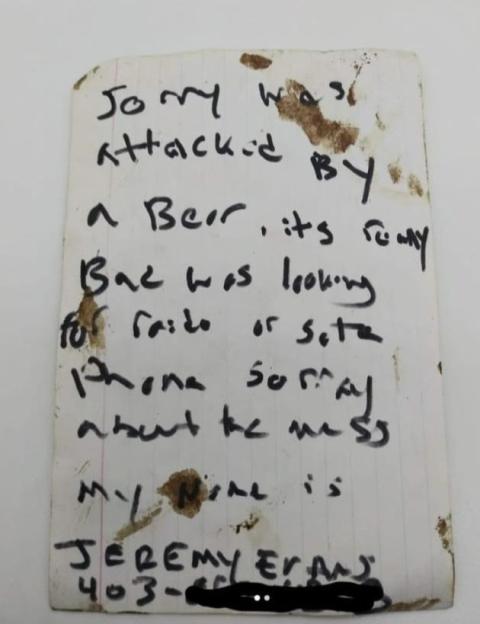 Sorry was
attacked By
a Bear, its realy
Bad was looking
for raido or sate
Phone sorray
about the mess
My Name is
JEREMY EVANS
403-